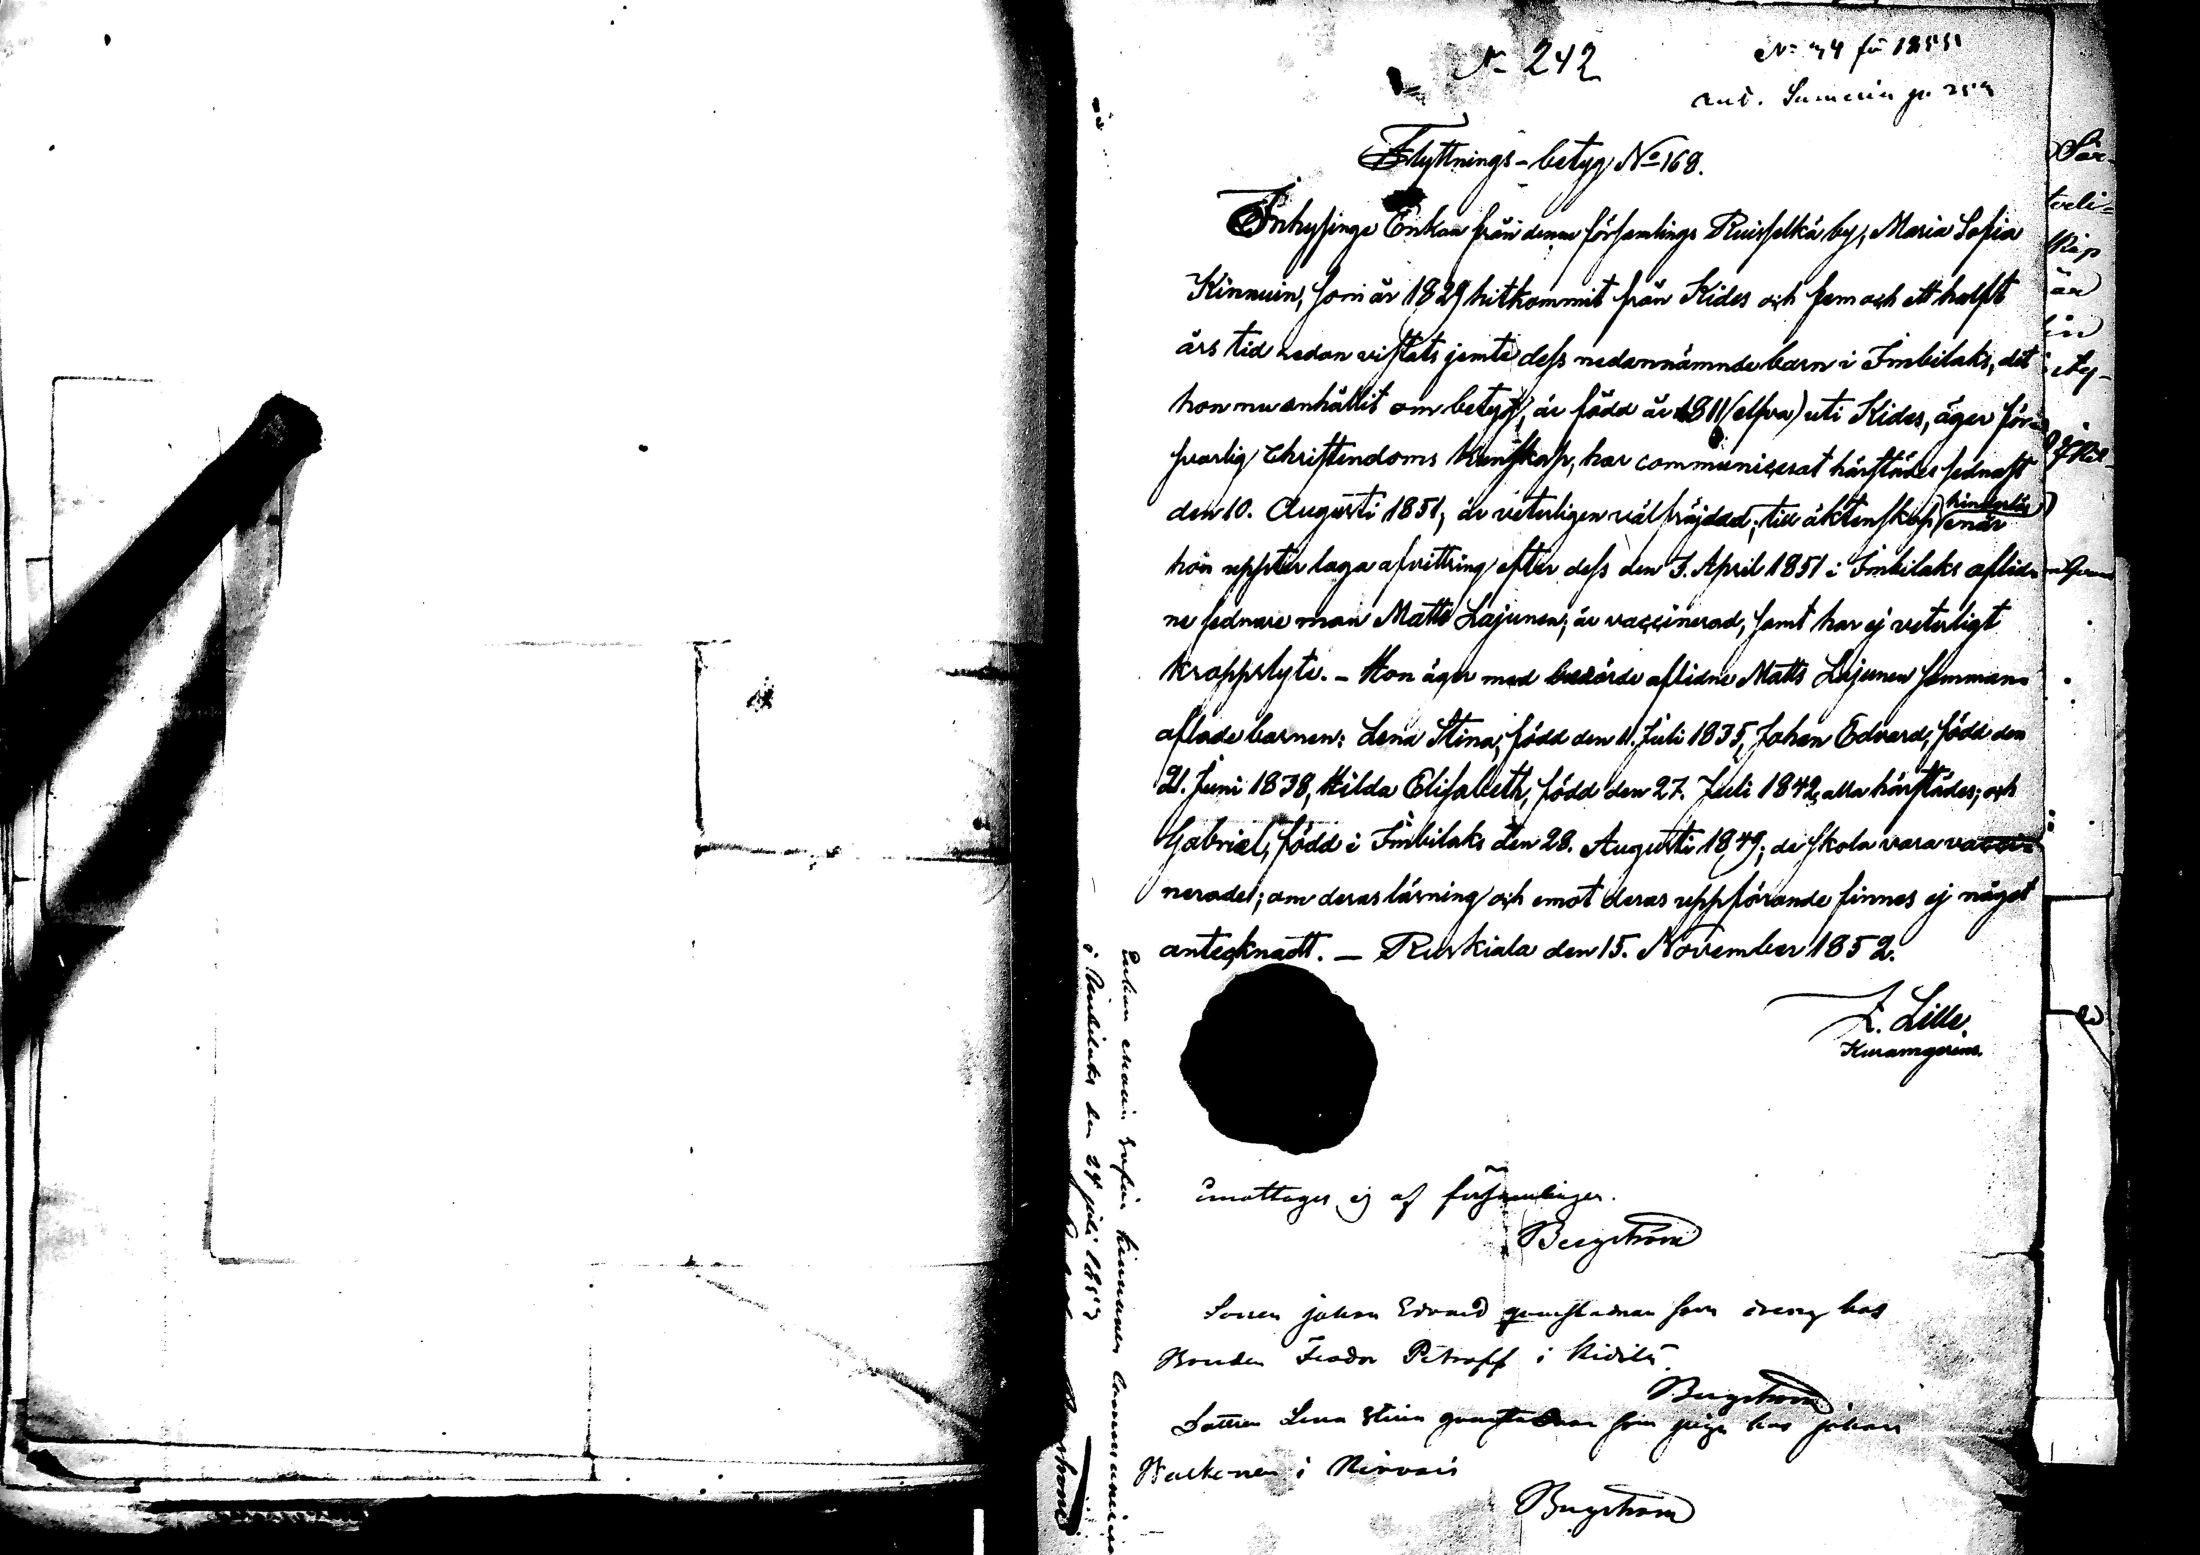 No 242
No 74 för 1855
Flyttnings-betyg No 168.
Inhysinge Enkan från denna församlings Ruisselkä by, Maria Sofia
Kinnuin, som år 1829 hitkommit från Kides och fem och ett halft
års tid sedan vistats jemte dess nedannämnde barn i Imbilaks, dit
hon nu anhållit om betyg, är född år 1811 (elfva) uti Kides, äger för-
svarlig Christendoms kunskap, har communicerat härstädes sednast
den 10. Augusti 1851, är veterligen välfräjdad; till äktenskap hinderlös enär
hon uppter laga afvittring efter dess den 3. April 1851 i Imbilaks aflid-
ne sednare man Matts Lajunen; är vaccinerad, samt har ej veterligt
kroppslyte. – Hon äger med berörde aflidne Matts Lajunen samman-
aflade barnen: Lena Stina, född den 11. Juli 1835, Johan Edvard, född den
21. Juni 1838, Hilda Elisabeth, född den 27. Juli 1842, alla härstädes; och
Gabriel, född i Imbilaks den 28. Augusti 1849; de skola vara vacci-
nerade; om deras läsning och emot deras uppförande finnes ej något
antecknadt. – Ruskiala den 15. November 1852.
Z. Lille.
emottages ej af församlingen.
Bergström
Sonen Johan Edvard qvarstadnar som dreng hos
Bonden Feodor Petroff i Kidilä.
Bergström
Dottren Lena Stina qvarstadnar som piga hos Johan
i Hirvois
Bergström
Enkan Maria Sofia Kinnunen
i Imbilaks den 24 juli 1853